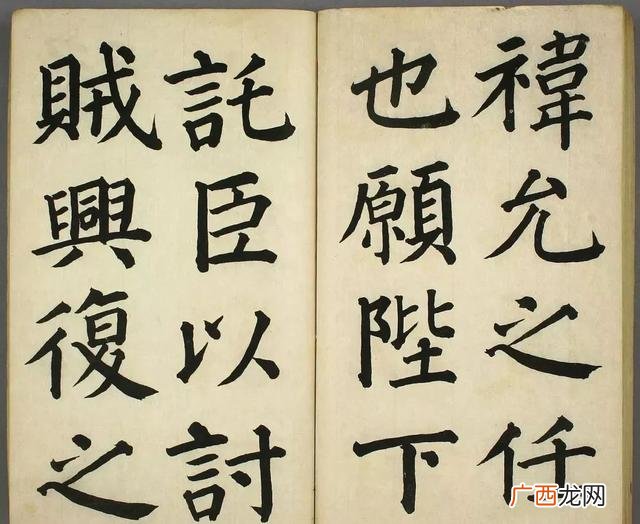 禕允之任
也願陛下
託臣以討
賊興復之
广西龙网